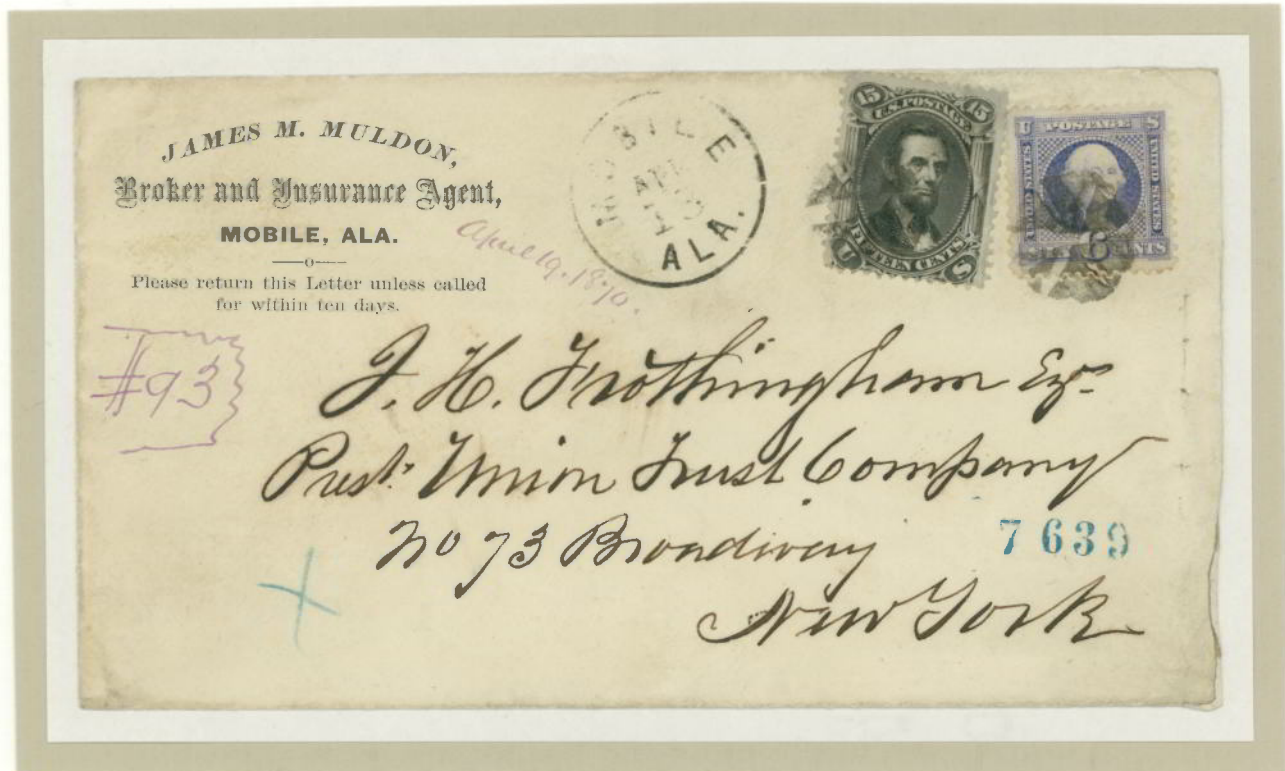 JAMES M. MULDON,
Broker and Insurance Agent,
MOBILE, ALA.
—o—
Please return this Letter unless called
for within ten days.
MOBILE
APR
19
ALA.
April 19. 1870.
15 15
U.S. POSTAGE
FIFTEEN CENTS
U S
U POSTAGE S
UNITED STATES
UNITED STATES
6 CENTS
#93
J. H. Frothingham Esqr
Prest. Union Trust Company
No 73 Broadway
7639
New York